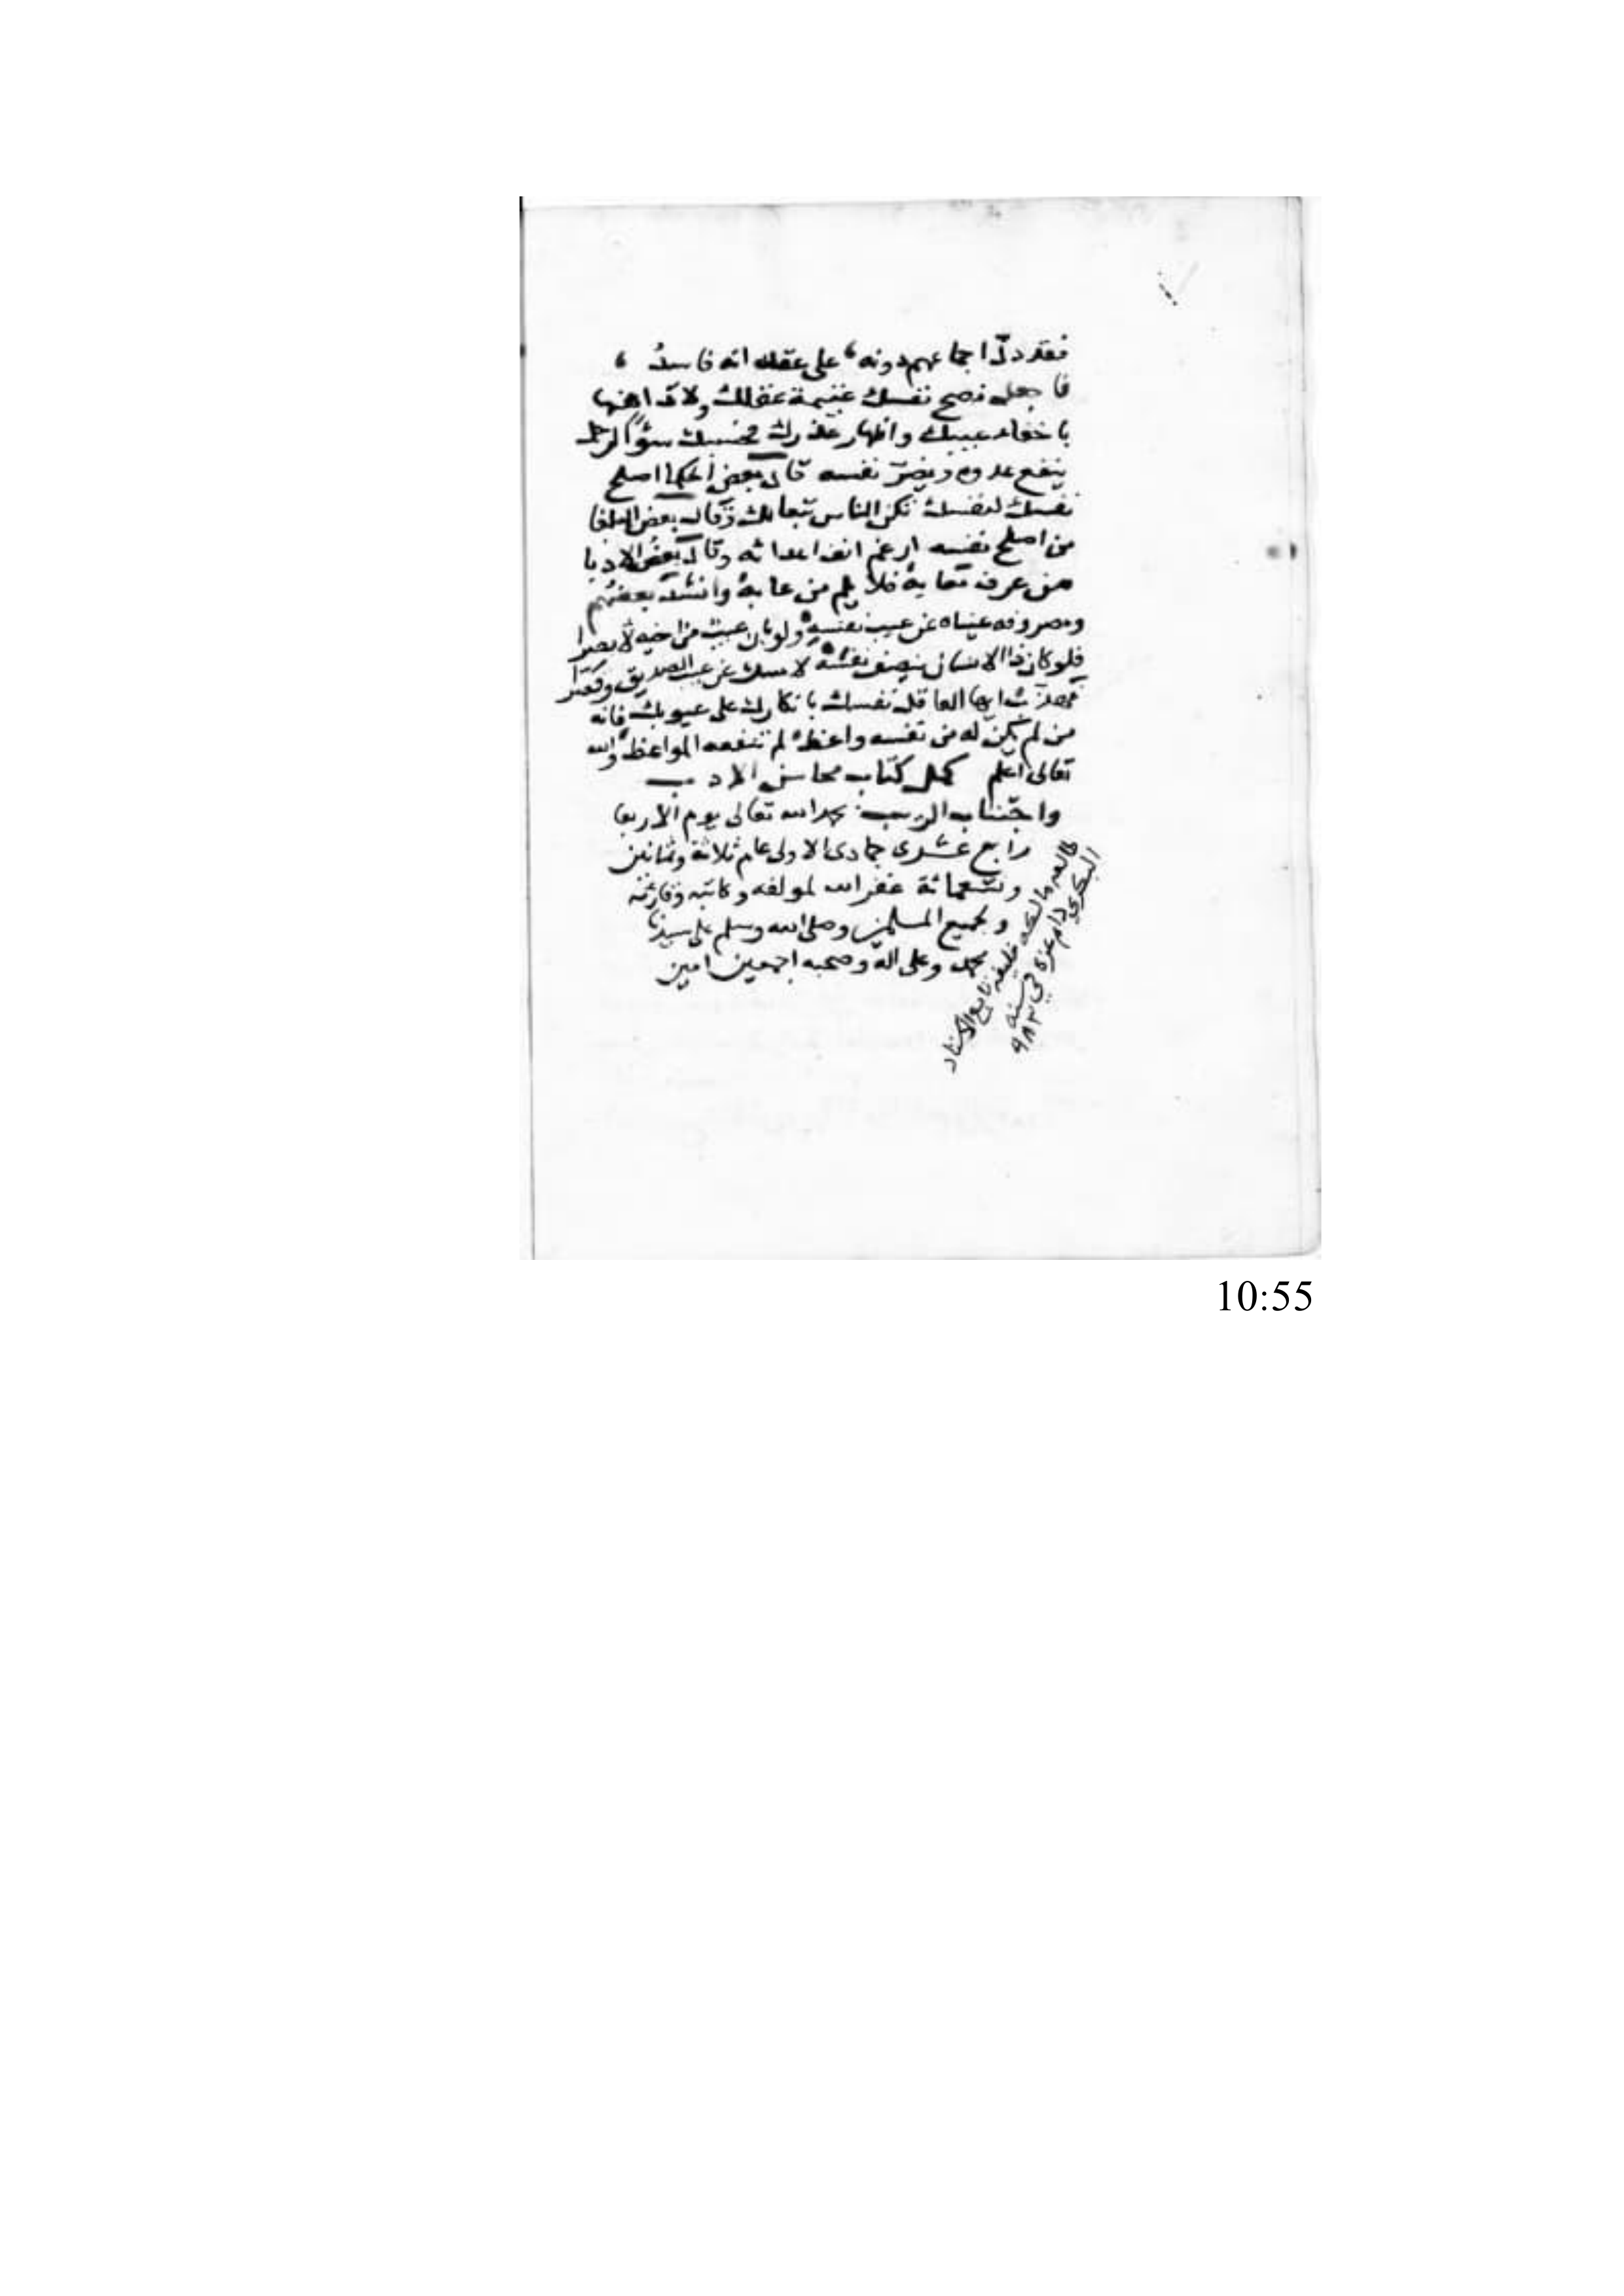 فقد دلّ اجماعهم دونه، على عقله انه فاسدُ،
فاجعل نصح نفسك غنيمة عقلك ولا تداهنها
باخفاء عيبك واظهار عذرك فحسبك سؤا لرجل
ينفع عدوه ويضرّ نفسه قال بعض الحكما اصلح
نفسك لنفسك تكن الناس تبعا لك وقال بعض البلغا
من اصلح نفسه ارغم انف اعدائه وقال بعض الادبا
من عرف معايبه فلا يلم من عابه وانشد بعضهم
ومصروفه عيناه عن عيب نفسه ولو بان عيب من اخيه لابصرا
فلو كان ذا الانسان ينصف نفسه لامسك عن عيب الصديق وقصرا
ايها العاقل نفسك بانكارك على عيوبك فانه
من لم يكن له من نفسه واعظ لم تنفعه المواعظ والله
تعالى اعلم كمل كتاب محاسن الادب
واجتناب الريب بحمد الله تعالى يوم الاربعا
رابع عشرى جمادى الاولى عام ثلاثة وثمانين
وتسعمائة غفر الله لمولفه وكاتبه وقارئه
وجميع المسلمين وصلى الله وسلم على سيدنا
محمد وعلى اله وصحبه اجمعين امين
طالعه مالكه خليفه تابع الاستاد
البكري دام عزه في سنه
٩٨٣
10:55